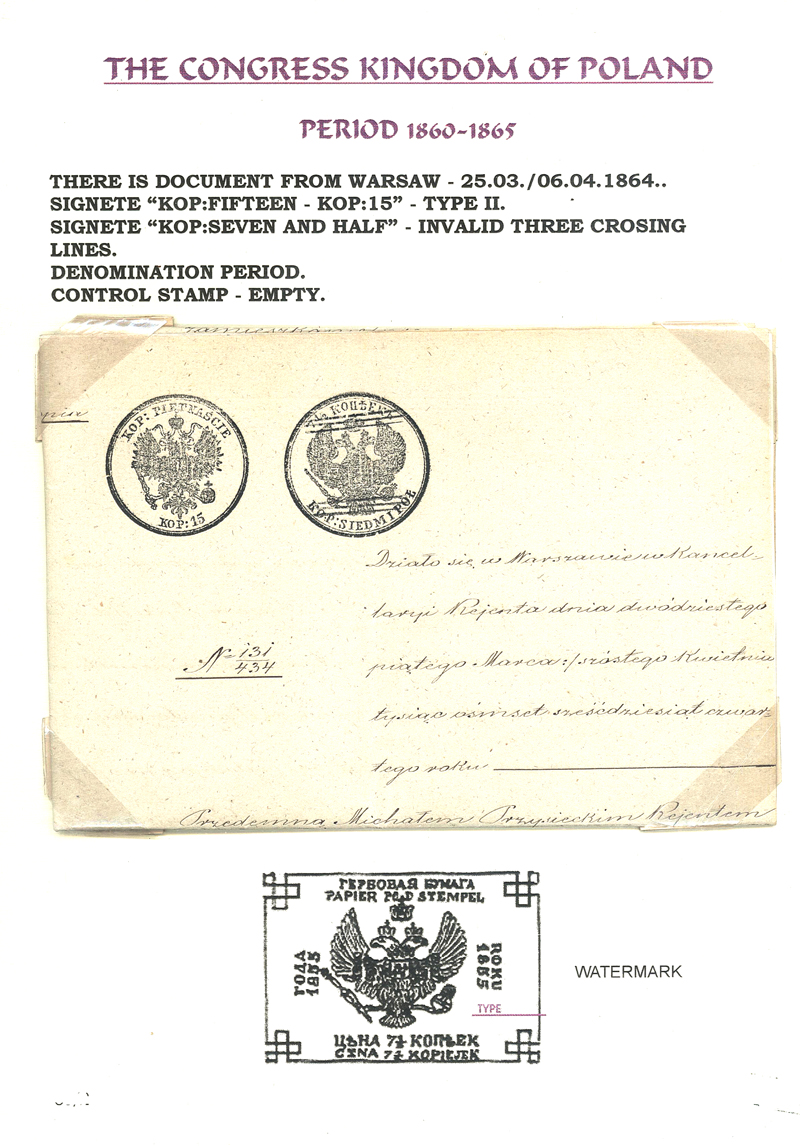 THE CONGRESS KINGDOM OF POLAND
PERIOD 1860-1865
THERE IS DOCUMENT FROM WARSAW - 25.03./06.04.1864..
SIGNETE “KOP:FIFTEEN - KOP:15” - TYPE II.
SIGNETE “KOP:SEVEN AND HALF” - INVALID THREE CROSING
LINES.
DENOMINATION PERIOD.
CONTROL STAMP - EMPTY.
KOP: PIĘTNAŚCIE
KOP: 15
7½ КОПѢЕКЪ
KOP: SIEDM I PÓŁ
Działo się w Warszawie w Kancel-
laryi Rejenta dnia dwódziestego
piątego Marca :/ szóstego Kwietnia
tysiąc ośmset sześćdziesiąt czwar-
tego roku
№ 131
434
Przedemną Michałem Przysieckim Rejentem
ГЕРБОВАЯ БУМАГА
PAPIER POD STEMPEL
ГОДА
1855
ROKU
1855
TYPE
ЦѢНА 7½ КОПѢЕК
CENA 7½ KOPIEJEK
WATERMARK